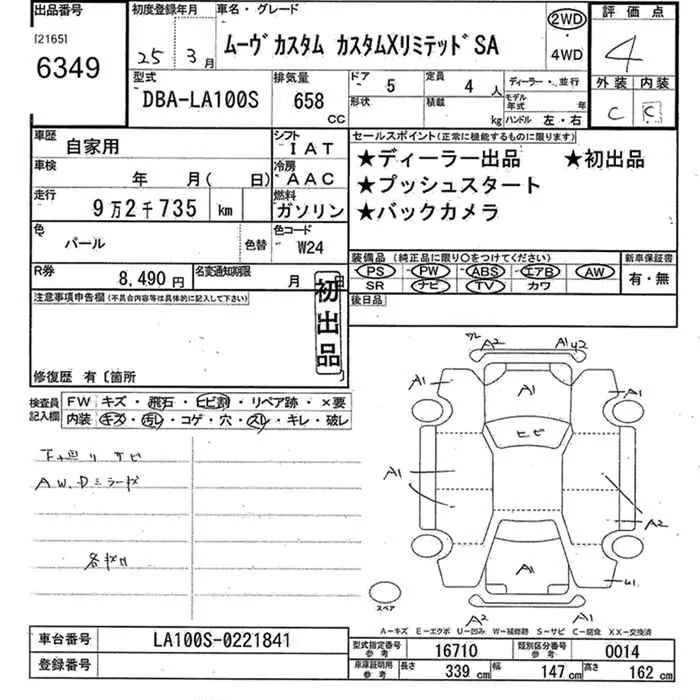 出品番号
[2165]
6349
初度登録年月
25年3月
車名・グレード
ムーヴカスタム カスタムXリミテッドSA
2WD
・
4WD
評価点
4
外装 内装
C C
型式
DBA-LA100S
排気量
658
CC
ドア 5
定員 4 人
ディーラー・並行
形状
積載 kg
モデル年式 年
ハンドル 左・右
車歴
自家用
シフト
IAT
車検
年 月( 日)
冷房
AAC
走行
9万2千735 km
燃料
ガソリン
色
パール
色替
色コード
W24
R券
8,490円
名変通知期限
月 日
セールスポイント(正常に機能するものに限ります)
★ディーラー出品 ★初出品
★プッシュスタート
★バックカメラ
装備品 (純正品に限り○をつけてください)
新車保証書
PS PW ABS エアB AW
SR ナビ TV カワ
有・無
後日品
注意事項申告欄(不具合内容等は具体的に記入して下さい)
初出品
修復歴 有〔箇所
検査員記入欄
FW キズ・飛石・ヒビ割・リペア跡・×要
内装 キズ・汚レ・コゲ・穴・スレ・キレ・破レ
下廻りサビ
AW、Dミラーキズ
A2
A1 U2
A1
A1
A1
ヒビ
A1
A1
A2
A1
U1
A2
A1
スペア
A-キズ E-エクボ U-凹み W-補修跡 S-サビ C-腐食 XX-交換済
車台番号
LA100S-0221841
登録番号
型式指定番号
参考
16710
類別区分番号
参考
0014
車庫証明用
参考
長さ 339 cm
幅 147 cm
高さ 162 cm